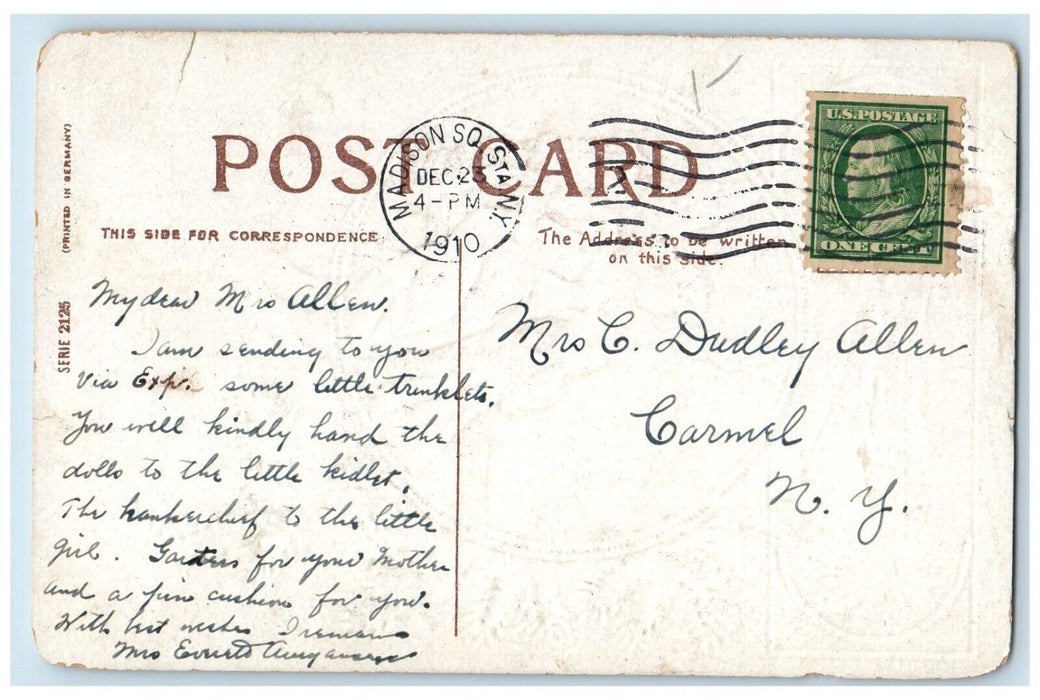 (PRINTED IN GERMANY)
SERIE 2125
POST CARD
MADISON SQ. STA. N.Y.
DEC 23
4-PM
1910
U.S. POSTAGE
ONE CENT
THIS SIDE FOR CORRESPONDENCE
The Address to be written
on this side.
My dear Mrs Allen.
I am sending to you
Via Exp. some little trinklets.
You will kindly hand the
dolls to the little kidlet.
The hankerchief to the little
girl. Garters for your Mother
and a pin cushion for you.
With best wishes I remain
Mrs Everett
Mrs C. Dudley Allen
Carmel
N. Y.